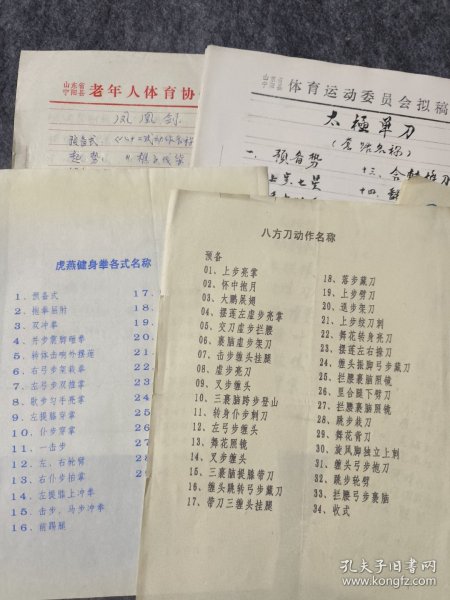 山东省
宁阳县 老年人体育协
凤凰剑
预备式
起势
山东省
宁阳县 体育运动委员会拟稿
太極单刀
一、预备势
十三、
上步七星
十四、
虎燕健身拳各式名称
1、预备式
2、抱拳屈肘
3、双冲拳
4、并步裹脚砸拳
5、转体击响外摆莲
6、右弓步架截拳
7、左弓步双推掌
8、歇步勾手亮掌
9、左提膝穿掌
10、仆步穿掌
11、一击步
12、左、右轮臂
13、右仆步拍掌
14、左提膝上冲拳
15、击步、马步冲拳
16、前踢腿
17、
18、
19、
20、
21、
22、
23、
24、
25、
26、
27、
28、
29、
八方刀动作名称
预备
01、上步亮掌
02、怀中抱月
03、大鹏展翅
04、摆莲左虚步亮掌
05、交刀虚步拦腰
06、裹脑虚步架刀
07、击步缠头挂腿
08、虚步亮刀
09、叉步缠头
10、三裹脑跨步登山
11、转身仆步刺刀
12、左弓步缠头
13、舞花照镜
14、叉步缠头
15、三裹脑提膝带刀
16、缠头跳转弓步藏刀
17、带刀三缠头挂腿
18、落步藏刀
19、上步劈刀
20、退步架刀
21、上步绞刀刺
22、舞花转身亮刀
23、摆莲左右撩刀
24、缠头振脚弓步藏刀
25、拦腰裹脑照镜
26、里合腿下劈刀
27、拦腰裹脑照镜
28、跳步截刀
29、舞花背刀
30、旋风脚独立上刺
31、缠头弓步抱刀
32、跳步轮劈
33、拦腰弓步裹脑
34、收式
孔夫子旧书网
www.kongfz.com